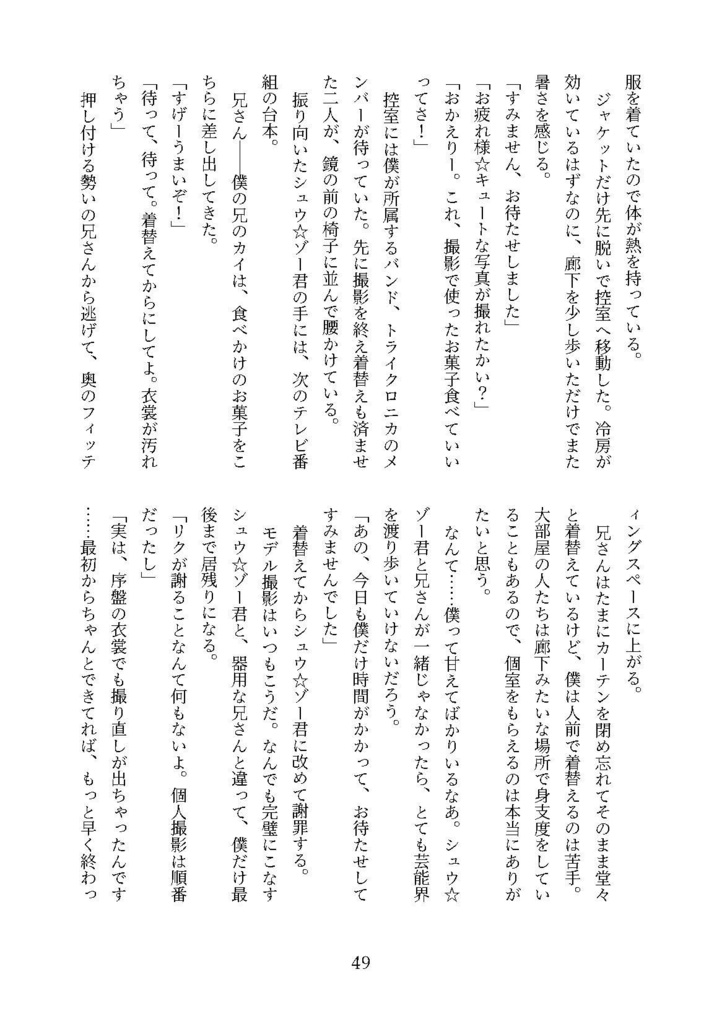 服を着ていたので体が熱を持っている。
　ジャケットだけ先に脱いで控室へ移動した。冷房が
効いているはずなのに、廊下を少し歩いただけでまた
暑さを感じる。
「すみません、お待たせしました」
「お疲れ様☆キュートな写真が撮れたかい？」
「おかえりー。これ、撮影で使ったお菓子食べていい
ってさ！」
　控室には僕が所属するバンド、トライクロニカのメ
ンバーが待っていた。先に撮影を終え着替えも済ませ
た二人が、鏡の前の椅子に並んで腰かけている。
　振り向いたシュウ☆ゾー君の手には、次のテレビ番
組の台本。
　兄さん――僕の兄のカイは、食べかけのお菓子をこ
ちらに差し出してきた。
「すげーうまいぞ！」
「待って、待って。着替えてからにしてよ。衣裳が汚れ
ちゃう」
　押し付ける勢いの兄さんから逃げて、奥のフィッテ
ィングスペースに上がる。
　兄さんはたまにカーテンを閉め忘れてそのまま堂々
と着替えているけど、僕は人前で着替えるのは苦手。
大部屋の人たちは廊下みたいな場所で身支度をしてい
ることもあるので、個室をもらえるのは本当にありが
たいと思う。
　なんて……僕って甘えてばかりいるなあ。シュウ☆
ゾー君と兄さんが一緒じゃなかったら、とても芸能界
を渡り歩いていけないだろう。
「あの、今日も僕だけ時間がかかって、お待たせして
すみませんでした」
　着替えてからシュウ☆ゾー君に改めて謝罪する。
　モデル撮影はいつもこうだ。なんでも完璧にこなす
シュウ☆ゾー君と、器用な兄さんと違って、僕だけ最
後まで居残りになる。
「リクが謝ることなんて何もないよ。個人撮影は順番
だったし」
「実は、序盤の衣裳でも撮り直しが出ちゃったんです
……最初からちゃんとできてれば、もっと早く終わっ
49